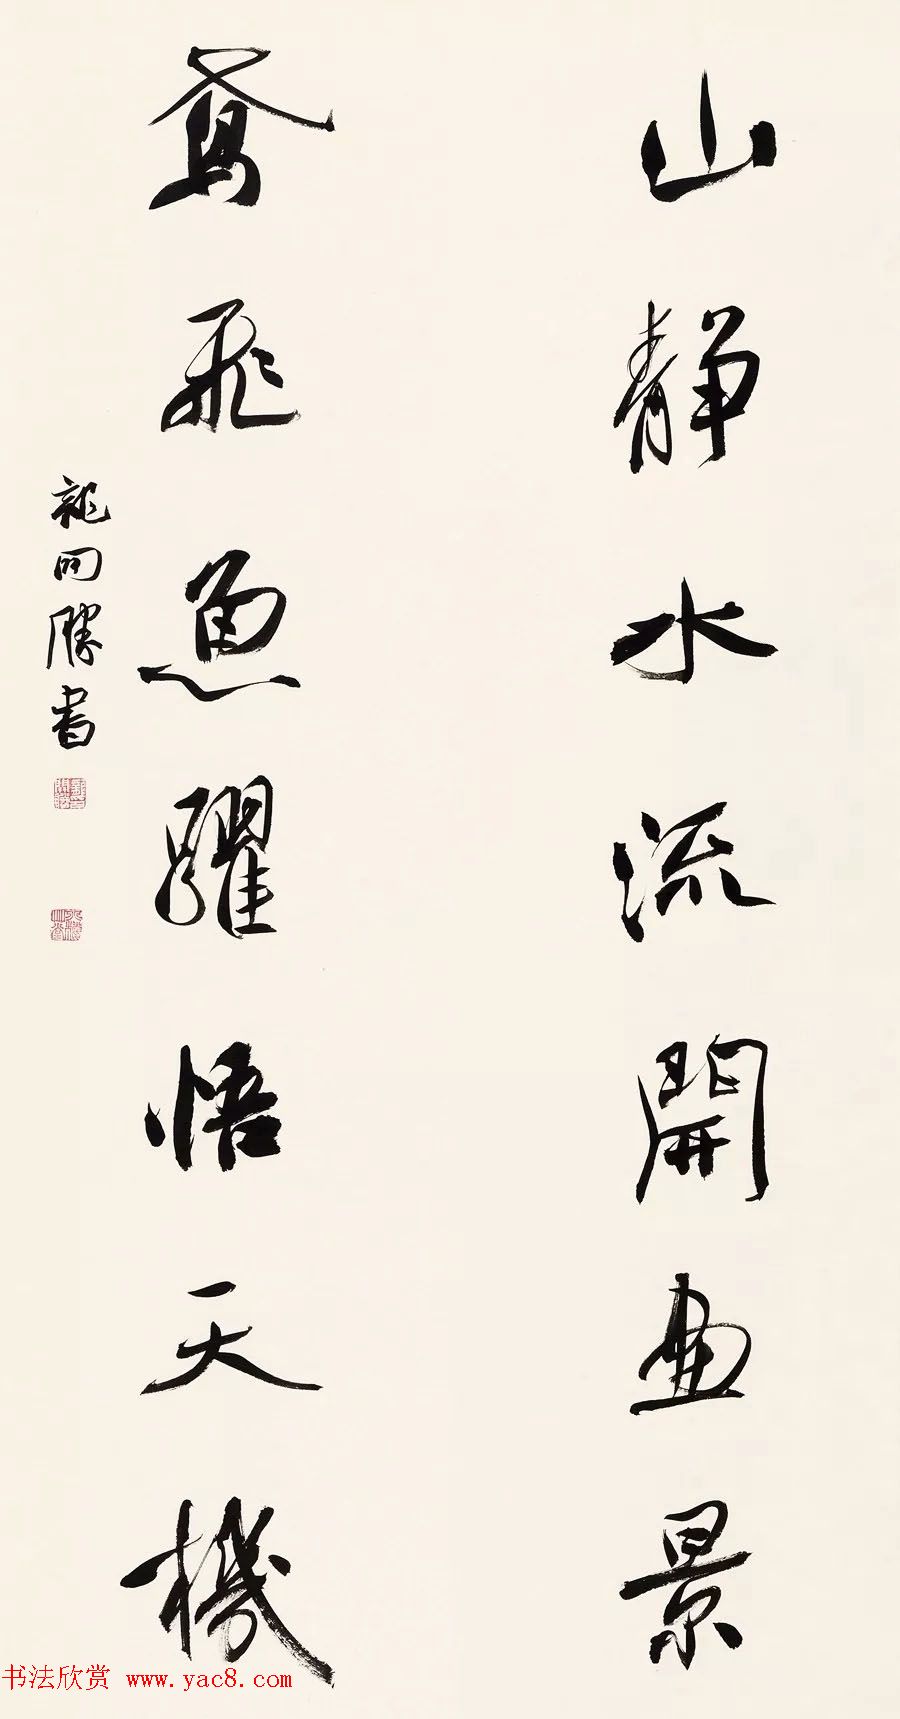 山静水流開画景
鸢飛魚躍悟天機
龍開勝書
书法欣赏 www.yac8.com